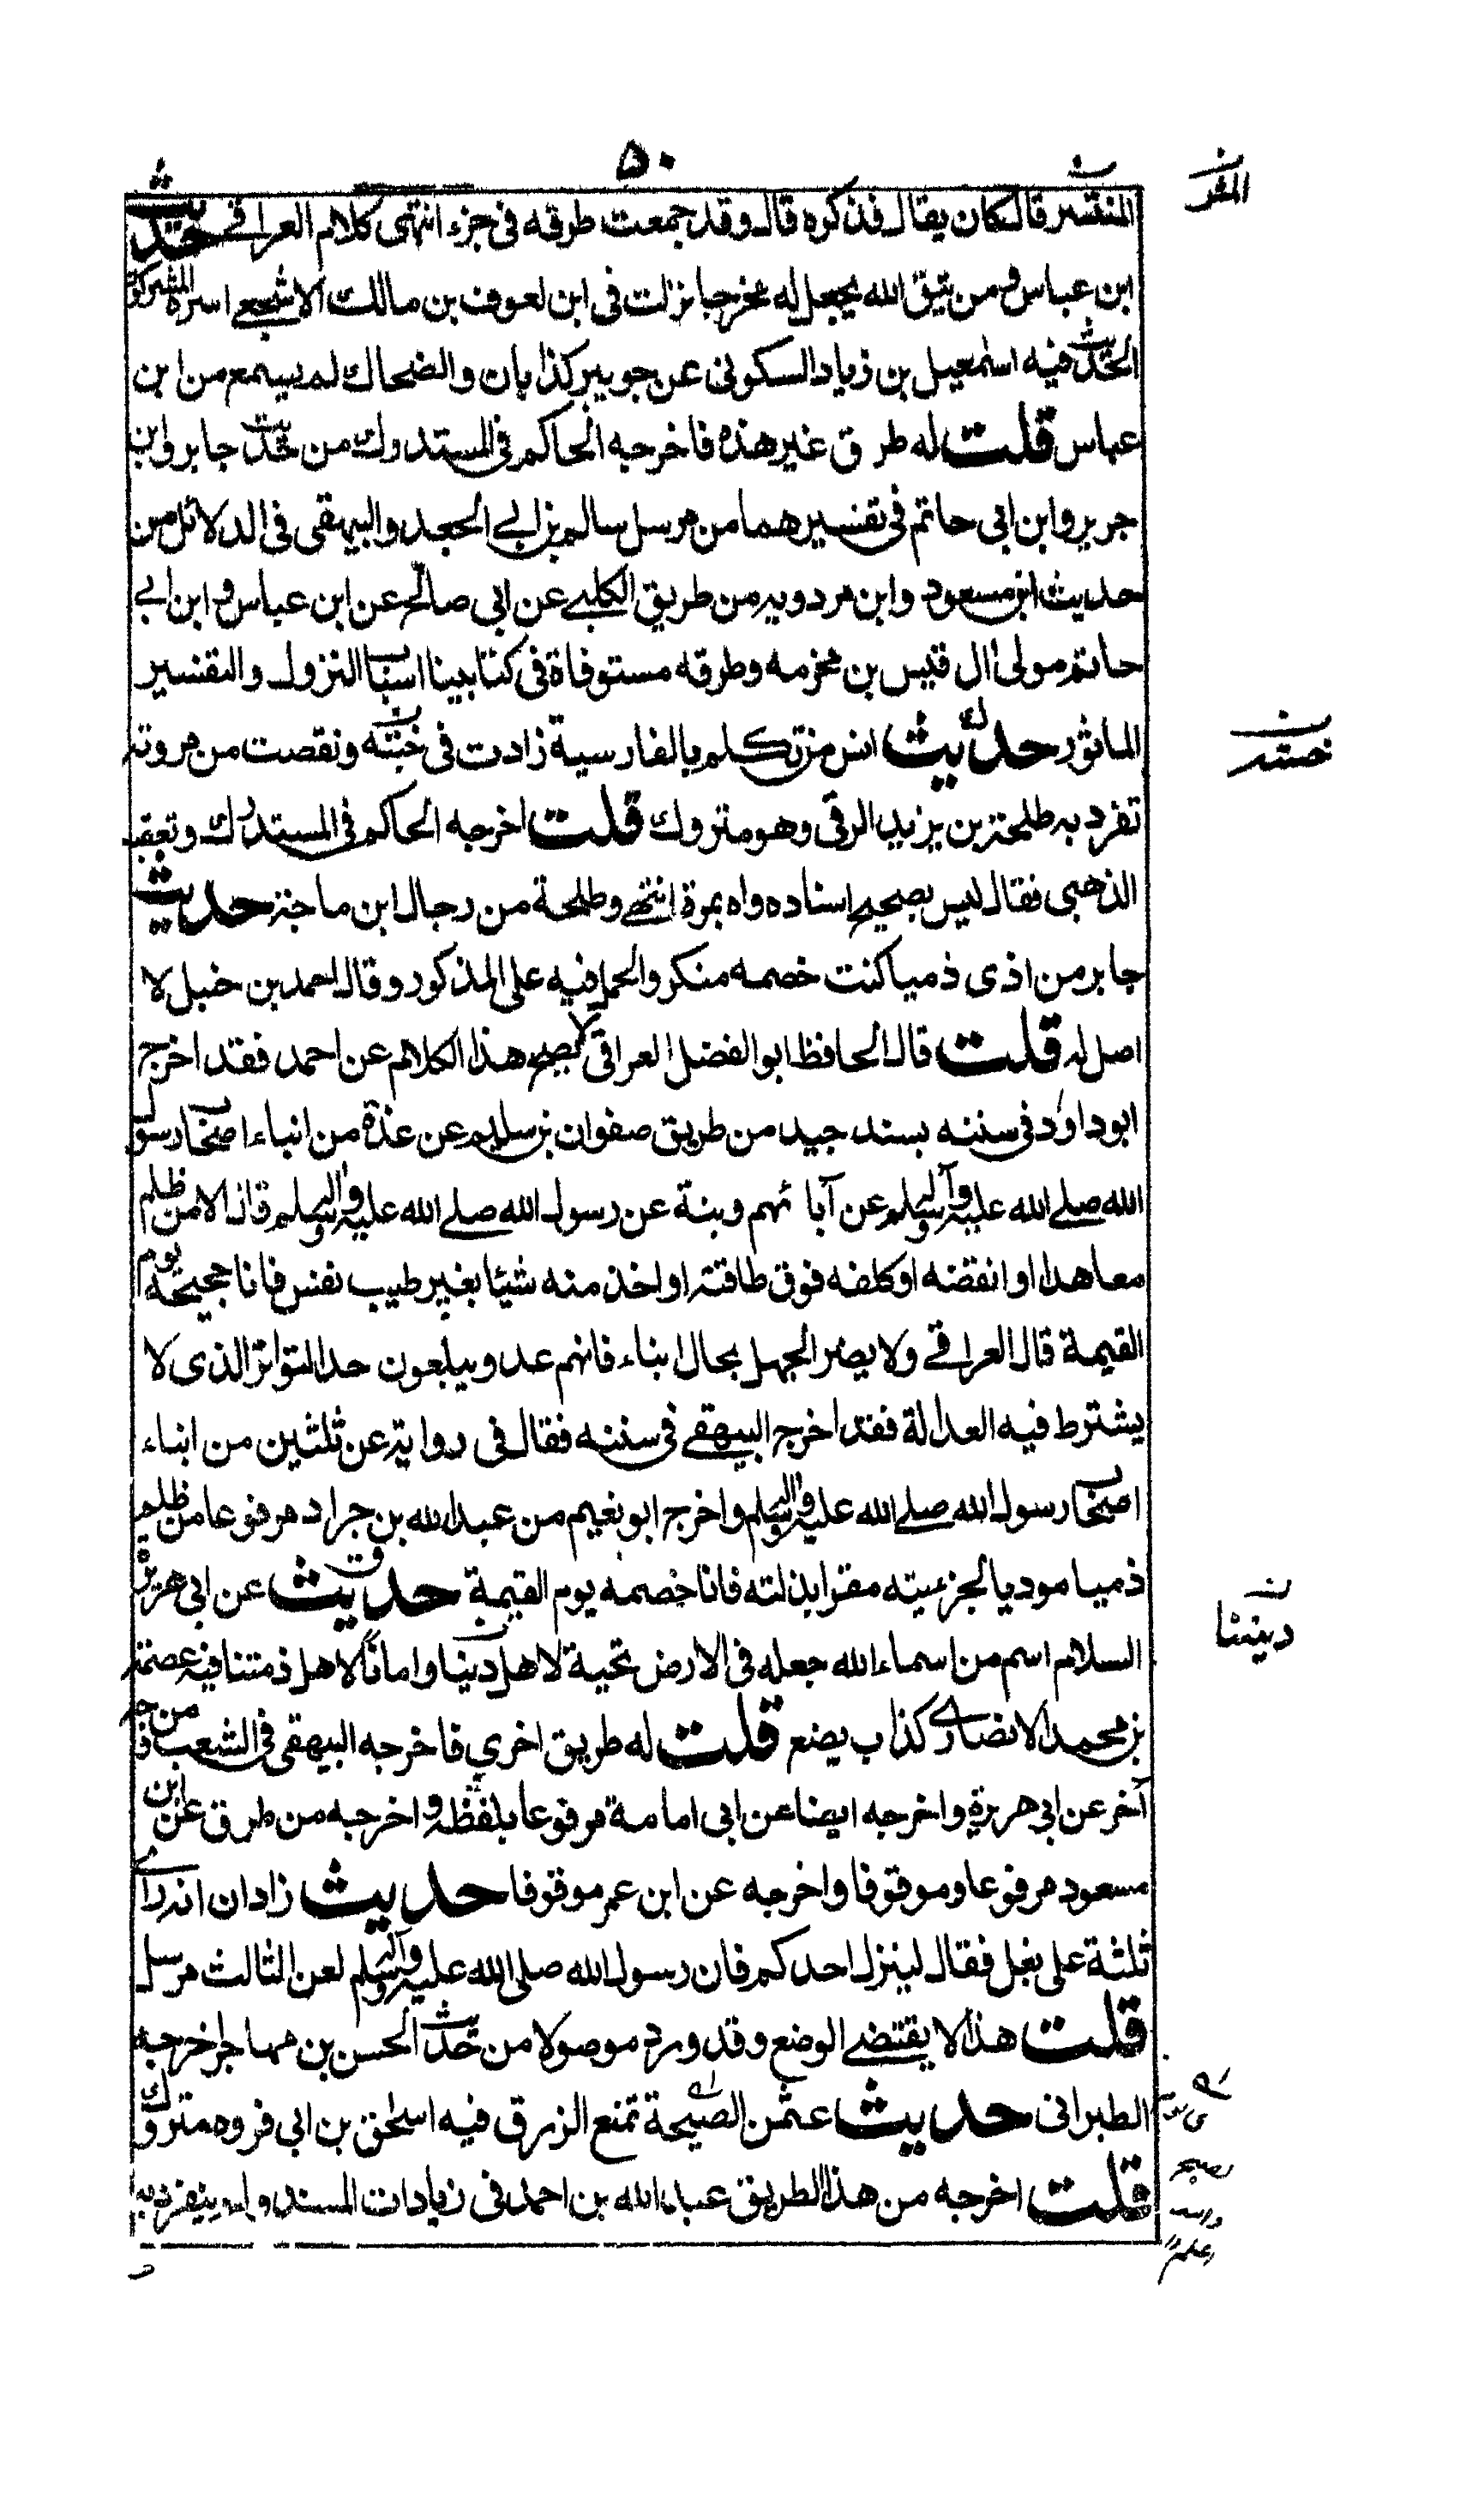 ۵۰
المنتشر قال كان يقال فذكره قال وقد جمعت طرقه فى جزء انتهى كلام العراقے حديث
ابن عباس ومن يتق الله يجعل له مخرجا نزلت فى ابن لعوف بن مالك الاشجعے اسره المشركون
الحديث فيه اسمعيل بن زياد السكونى عن جويبر كذابان والضحاك لم يسمع من ابن
عباس قلت له طرق غير هذه فاخرجه الحاكم فى المستدرك من حديث جابر وابن
جرير وابن ابى حاتم فى تفسيرهما من مرسل سالم بن ابے الجعد والبيهقى فى الدلائل من
حديث ابن مسعود وابن مردويه من طريق الكلبے عن ابى صالح عن ابن عباس وابن ابے
حاتم مولى ال قيس بن مخرمه وطرقه مستوفاة فى كتابينا اسباب النزول والتفسير
الماثور حديث انس من تكلم بالفارسية زادت فى خبثه ونقصت من مروته
تفرد به طلحة بن يزيد الرقى وهو متروك قلت اخرجه الحاكم فى المستدرك وتعقبه
الذهبى فقال ليس بصحيح اسناده واه بمرة انتهے وطلحة من رجال ابن ماجة حديث
جابر من اذى ذميا كنت خصمه منكر والحمل فيه على المذكور وقال احمد بن حنبل لا
اصل له قلت قال الحافظ ابو الفضل العراقى لا يصح هذا الكلام عن احمد فقد اخرج
ابو داود فى سننه بسند جيد من طريق صفوان بن سليم عن عدة من ابناء اصحاب رسول
الله صلے الله عليه وآله وسلم عن آبائهم دنية عن رسول الله صلے الله عليه وآله وسلم قال الا من ظلم
معاهدا او انقضه او كلفه فوق طاقته او اخذ منه شيئا بغير طيب نفس فانا حجيجه يوم
القيمة قال العراقے ولا يضر الجهل بحال ابناء فانهم عدد يبلغون حد التواتر الذى لا
يشترط فيه العدالة فقد اخرجه البيهقے فى سننه فقال فى روايته عن ثلثين من ابناء
اصحاب رسول الله صلے الله عليه وآله وسلم واخرج ابو نعيم من عبد الله بن جراد مرفوعا من ظلم
ذميا موديا لجزيته مقرا بذلته فانا خصمه يوم القيمة حديث عن ابى هريرة
السلام اسم من اسماء الله جعله فى الارض تحية لاهل ديننا وامانا لاهل ذمتنا فيه عصمة
بن محمد الانصارى كذاب يضع قلت له طريق اخرى فاخرجه البيهقى فى الشعب من وجه
آخر عن ابى هريرة واخرجه ايضا عن ابى امامة مرفوعا بلفظه واخرجه من طرق عن ابن
مسعود مرفوعا وموقوفا واخرجه عن ابن عمر موقوفا حديث زادان انه راى
ثلثة على بغل فقال لينزل احدكم فان رسول الله صلى الله عليه وآله وسلم لعن الثالث مرسل
قلت هذا لا يقتضے الوضع وقد ورد موصولا من حديث الحسن بن مهاجر اخرجه
الطبرانى حديث عثمن الصبيحة تمنع الرزق فيه اسحق بن ابى فروه متروك
قلت اخرجه من هذا الطريق عبد الله بن احمد فى زيادات المسند ولم ينفرد به
ديننا